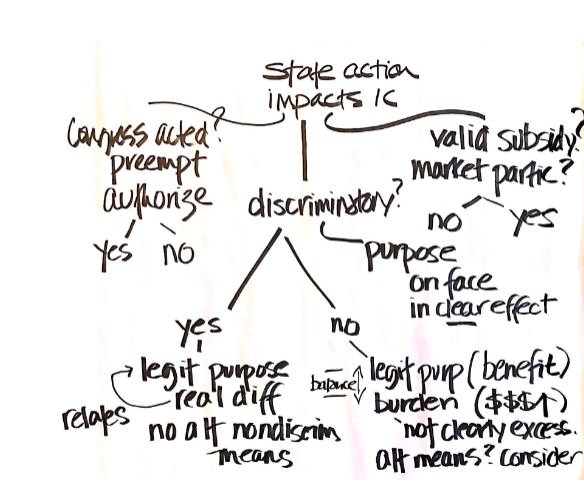 State action
impacts IC
Congress acted?
preempt
authorize
yes no
discriminatory?
purpose
on face
in clear effect
valid subsidy?
market partic?
no yes
yes
legit purpose
real diff
relates
no alt nondiscrim
means
no
balance
legit purp (benefit)
burden ($$$↑)
not clearly excess.
alt means? consider